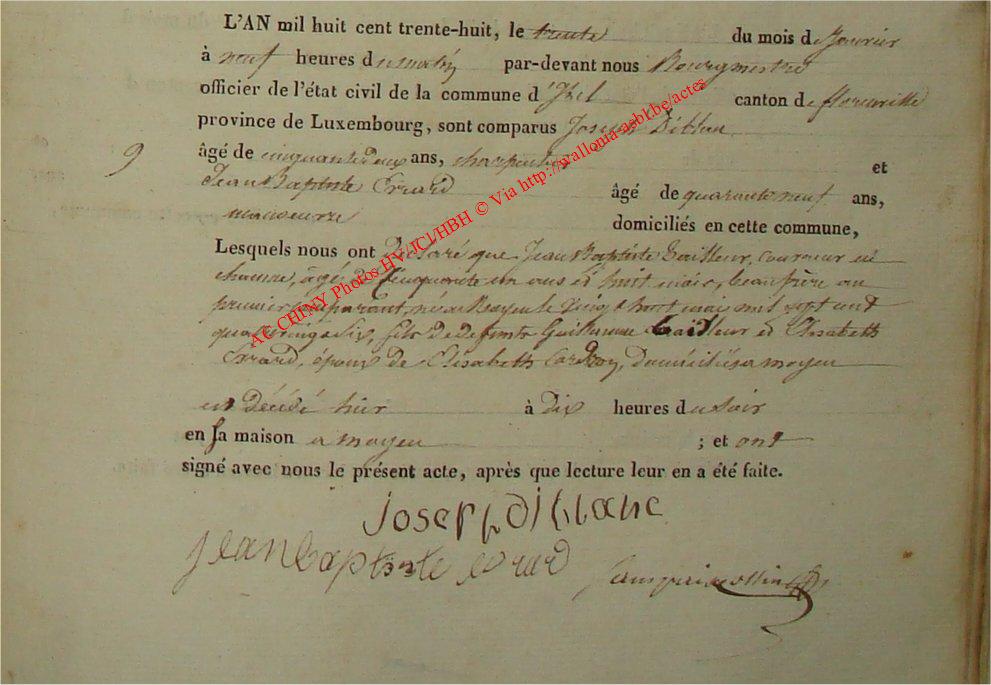 L'AN mil huit cent trente-huit, le trente du mois de Janvier
à neuf heures du matin par-devant nous Bourgmestre
officier de l'état civil de la commune d'Izel canton de florenville
province de Luxembourg, sont comparus Joseph
9 âgé de cinquante deux ans, charpentier et
Jean Baptiste Errard âgé de quarante neuf ans,
manoeuvre domiciliés en cette commune,
Lesquels nous ont declaré que Jean Baptiste Bailleur, couvreur en
chaume, âgé de Cinquante un ans et huit mois, beau frère au
premier comparant, né a Moyen le vingt huit mai mil sept cent
quatre vingt six, fils de defunts Guillaume Bailleur et Elisabeth
Errard, époux de Elisabeth domiciliés a moyen
est décédé hier à dix heures du soir
en sa maison a moyen ; et ont
signé avec nous le présent acte, après que lecture leur en a été faite.
joseph diblanc
jean baptiste erard
AG CHIMY Photos HV/JCL/HBH © Via http://wallonia-asbl.be/actes